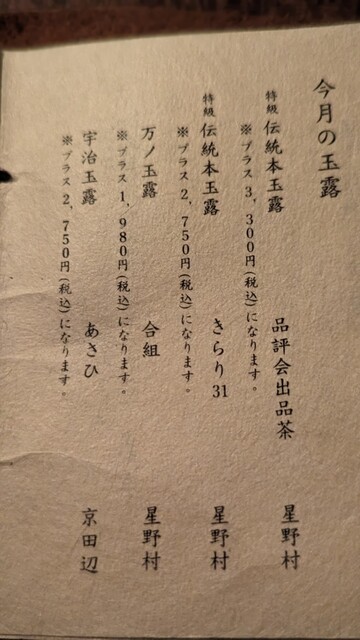 今月の玉露
特級 伝統本玉露 品評会出品茶 星野村
※プラス3,300円(税込)になります。
特級 伝統本玉露 きらり31 星野村
※プラス2,750円(税込)になります。
万ノ玉露 合組 星野村
※プラス1,980円(税込)になります。
宇治玉露 あさひ 京田辺
※プラス2,750円(税込)になります。